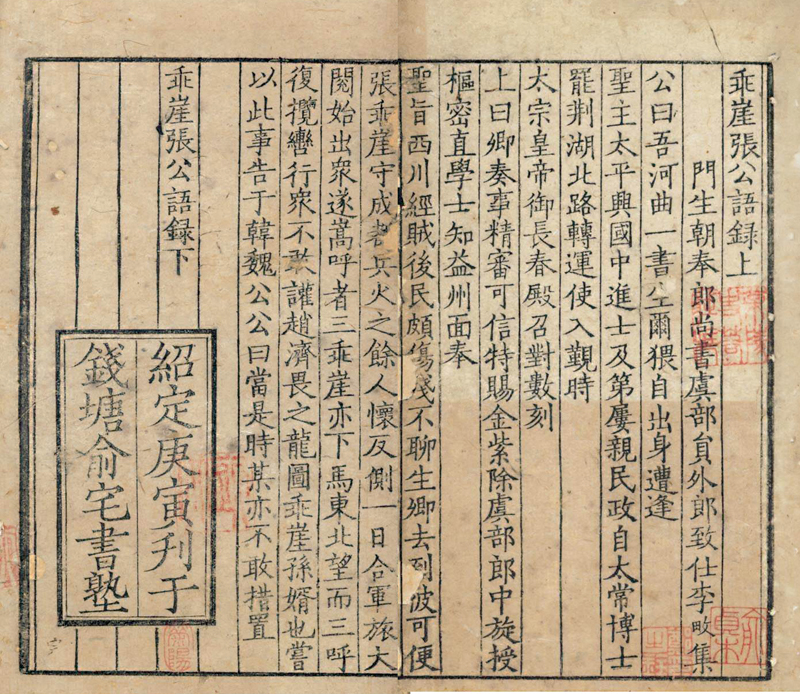 乖崖張公語録上
門生朝奉郎尚書虞部負外郎致仕李畋集
公曰吾河曲一書生爾猥自出身遭逢
聖主太平興國中進士及第屢親民政自太常博士
罷荆湖北路轉運使入覲時
太宗皇帝御長春殿召對數刻
上曰卿奏事精審可信特賜金紫除虞部郎中旋授
樞密直學士知益州面奉
聖旨西川經賊後民頗傷残不聊生卿去到彼可便
張乖崖守成都兵火之餘人懷反側一日合軍旅大
閱始出衆遂嵩呼者三乖崖亦下馬東北望而三呼
復攬轡行衆不敢讙趙濟畏之龍圖乖崖孫婿也嘗
以此事告于韓魏公公曰當是時某亦不敢措置
乖崖張公語録下
紹定庚寅刋于
錢塘俞宅書塾